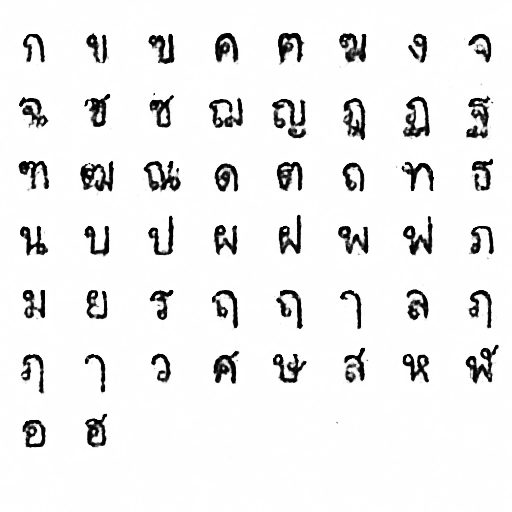 ก ข ฃ ค ฅ ฆ ง จ
ฉ ช ซ ฌ ญ ฎ ฏ ฐ
ฑ ฒ ณ ด ต ถ ท ธ
น บ ป ผ ฝ พ ฟ ภ
ม ย ร ฤ ฤ า ล ภ
ฦ า ว ศ ษ ส ห ฬ
อ ฮ